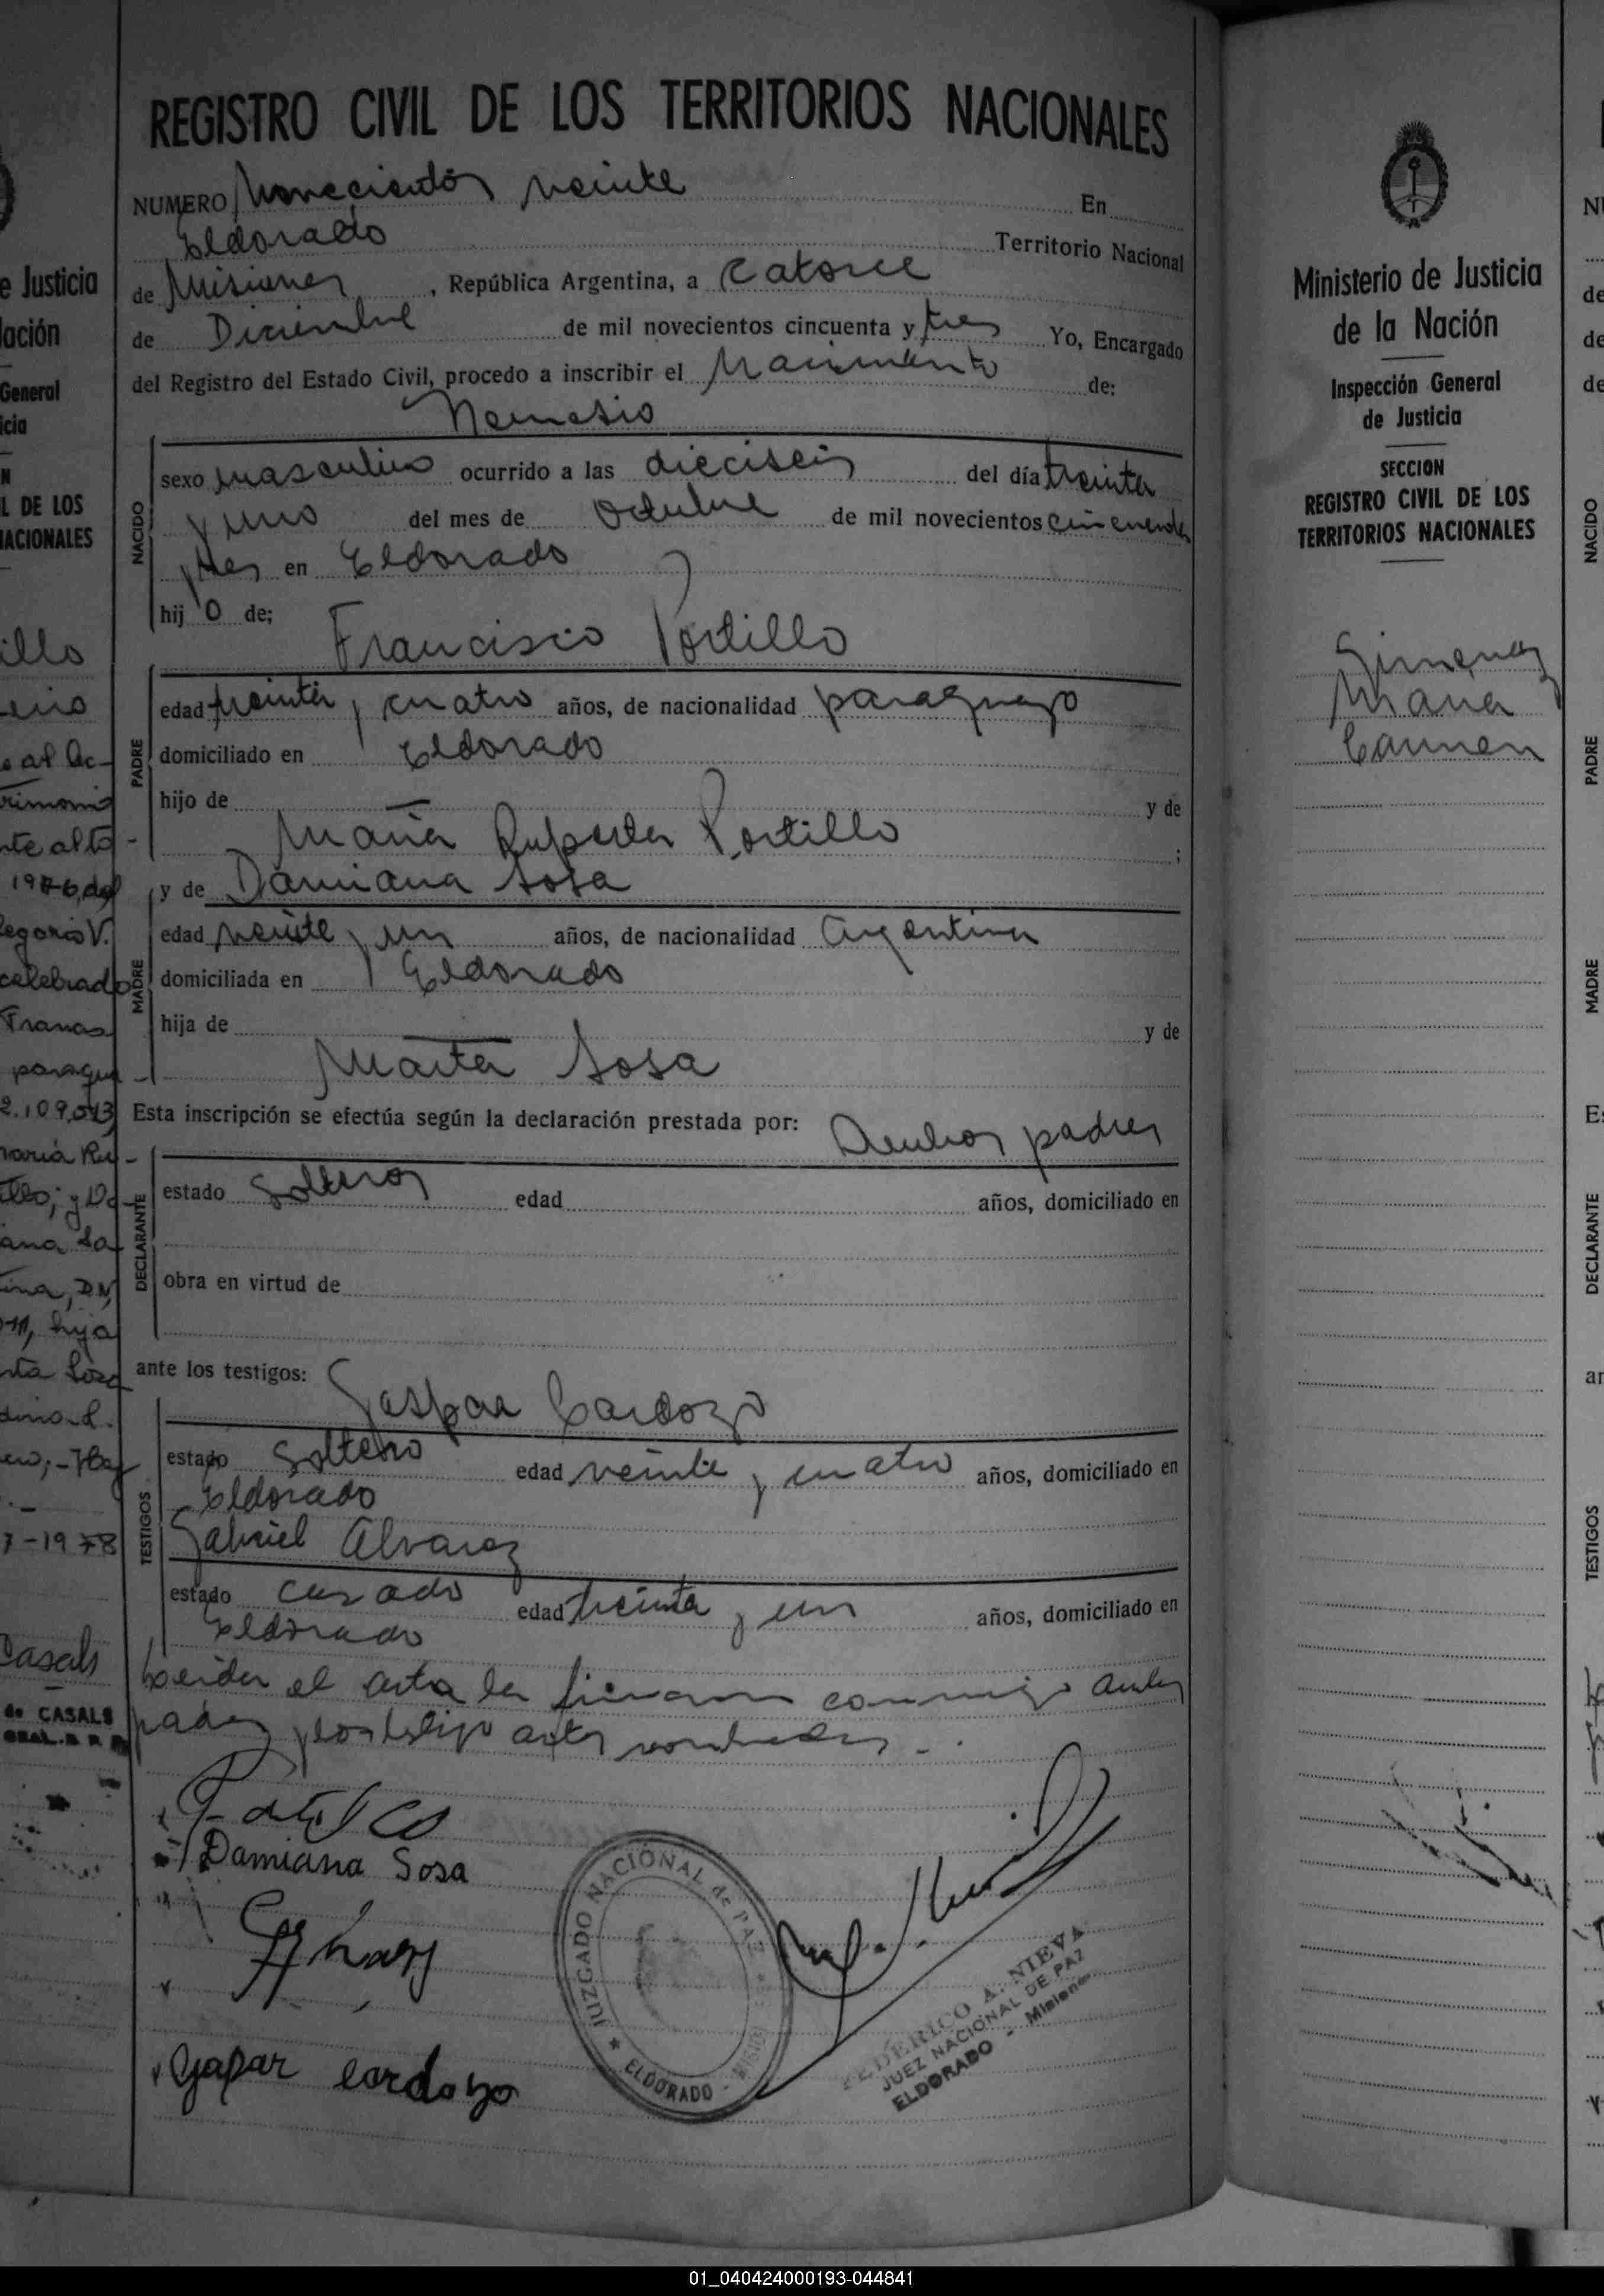 e Justicia
ación
General
icia
N
L DE LOS
ACIONALES
illo
e al Ac-
rimonio
nte alto
1976, del
egorio V.
celebrado
Franco
paragua
2.109.013
maría Ru-
illo; y Da-
iana So
tina, D.N.
hija
rta Sosa
7-1978
Casals
de CASALS
REGISTRO CIVIL DE LOS TERRITORIOS NACIONALES
NUMERO Novecientos veinte En
Eldorado Territorio Nacional
de Misiones, República Argentina, a catorce
de Diciembre de mil novecientos cincuenta y tres Yo, Encargado
del Registro del Estado Civil, procedo a inscribir el Nacimiento de:
Nemesio
NACIDO
sexo masculino ocurrido a las dieciseis del día treinta
y uno del mes de Octubre de mil novecientos cincuenta
y tres en Eldorado
hij o de;
Francisco Portillo
PADRE
edad treinta y cuatro años, de nacionalidad paraguayo
domiciliado en Eldorado
hijo de — y de
María Ruperta Portillo ;
y de Damiana Sosa
MADRE
edad veinte y un años, de nacionalidad Argentina
domiciliada en Eldorado
hija de — y de
Marta Sosa
Esta inscripción se efectúa según la declaración prestada por: Ambos padres
DECLARANTE
estado Solteros edad años, domiciliado en
obra en virtud de
ante los testigos:
Gaspar Cardozo
TESTIGOS
estado Soltero edad veinte y cuatro años, domiciliado en
Eldorado
Gabriel Alvarez
estado casado edad treinta y un años, domiciliado en
Eldorado
Leida el acta la firman conmigo ambos
padres y los testigos antes nombrados.-
Damiana Sosa
Gaspar Cardozo
JUZGADO NACIONAL de PAZ
ELDORADO - MISIONES
FEDERICO A. NIEVA
JUEZ NACIONAL DE PAZ
ELDORADO - Misiones
Ministerio de Justicia
de la Nación
Inspección General
de Justicia
SECCION
REGISTRO CIVIL DE LOS
TERRITORIOS NACIONALES
Gimenez
Maria
Carmen
NACIDO
PADRE
MADRE
DECLARANTE
TESTIGOS
01_040424000193-044841